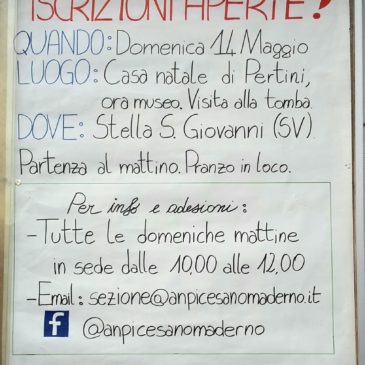 ISCRIZIONI APERTE!
QUANDO: Domenica 14 Maggio
LUOGO: Casa natale di Pertini,
ora museo. Visita alla tomba.
DOVE: Stella S. Giovanni (SV)
Partenza al mattino. Pranzo in loco.
Per info e adesioni:
- Tutte le domeniche mattine
in sede dalle 10,00 alle 12,00
- Email: sezione@anpicesanomaderno.it
f @anpicesanomaderno